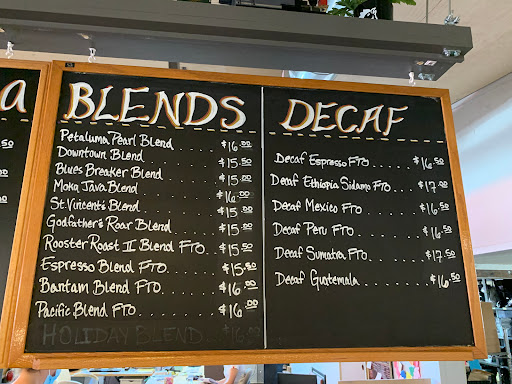 BLENDS
Petaluma Pearl Blend........$16.00
Downtown Blend........$15.50
Blues Breaker Blend........$15.50
Moka Java Blend........$16.00
St. Vincent's Blend........$15.00
Godfather's Roar Blend........$15.00
Rooster Roast II Blend FTO...$15.50
Espresso Blend FTO........$15.50
Bantam Blend FTO........$16.00
Pacific Blend FTO........$16.00
HOLIDAY BLEND
DECAF
Decaf Espresso FTO......$16.50
Decaf Ethiopia Sidamo FTO....$17.00
Decaf Mexico FTO........$16.50
Decaf Peru FTO........$16.50
Decaf Sumatra FTO........$17.50
Decaf Guatemala........$16.50